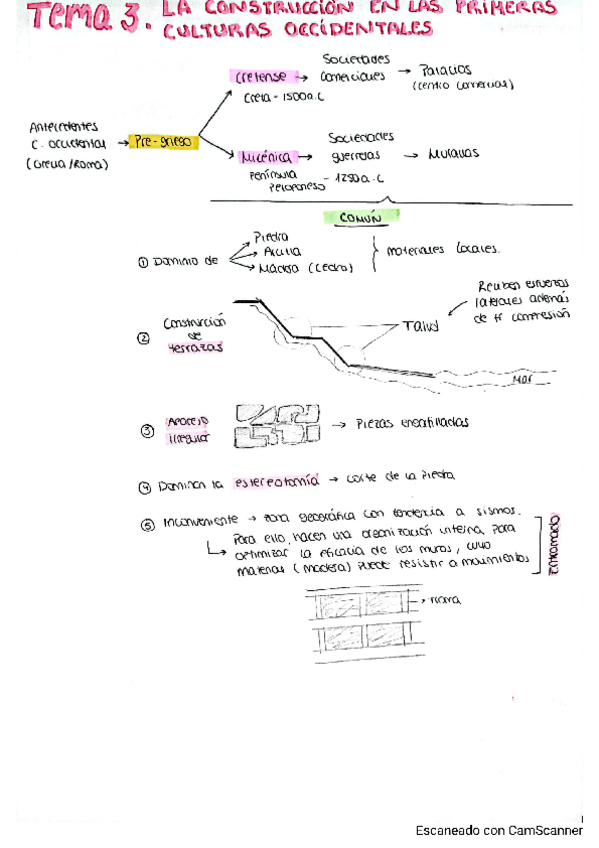 Tema 3. LA CONSTRUCCIÓN EN LAS PRIMERAS
CULTURAS OCCIDENTALES
Antecedentes
C. occidental → Pre-griego
(Grecia/Roma)
Cretense → Sociedades comerciales → Palacios
(centro comercial)
Creta - 1500 a.C
Micénica → Sociedades guerreras → Murallas
Península
Peloponeso - 1250 a.C
COMÚN
① Dominio de
Piedra
Arcilla
Madera (Cedro)
materiales locales.
② Construcción
de
terrazas
Talud
Reciben esfuerzos
laterales además
de compresión
Mar
③ Aparejo
irregular
→ Piezas encastilladas
④ Dominan la estereotomía → corte de la piedra
⑤ Inconveniente → zona geográfica con tendencia a sismos.
Para ello, hacen una organización interna, para
optimizar la eficacia de los muros, cuyo
material (madera) puede resistir a movimientos
Entramado
→ rama
1
Escaneado con CamScanner